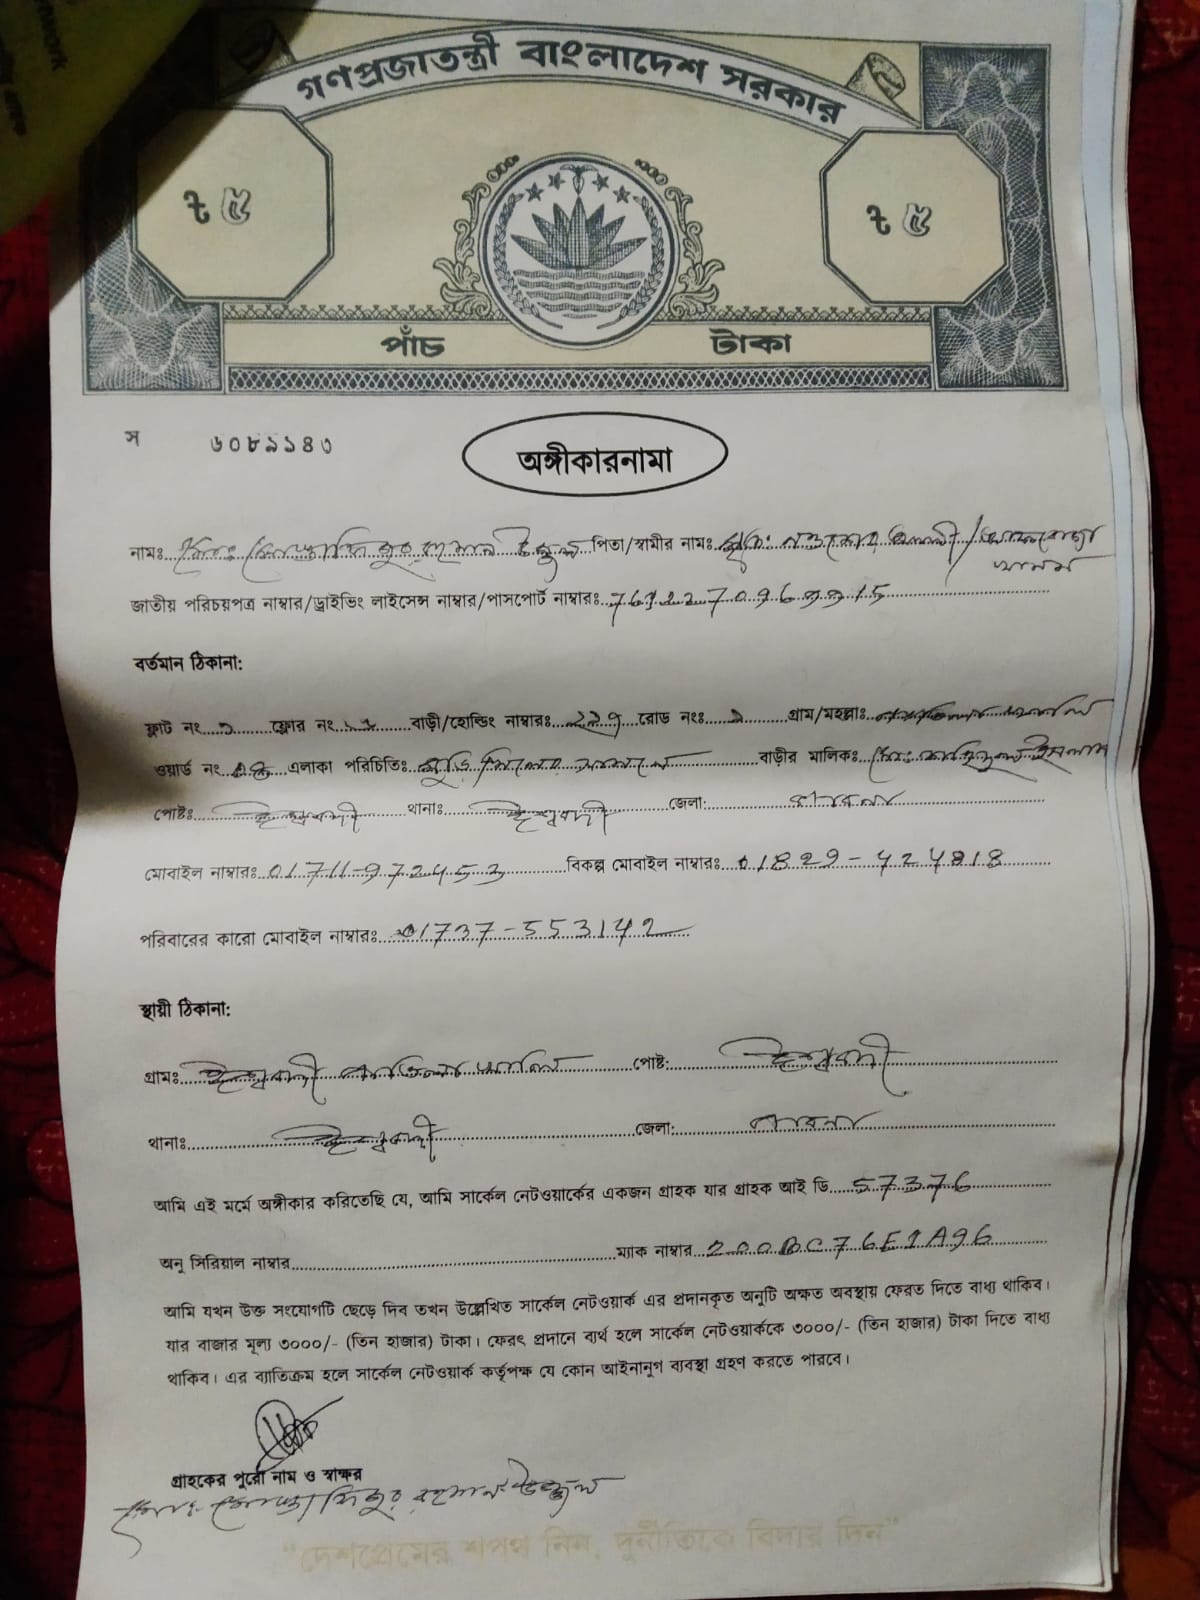 গণপ্রজাতন্ত্রী বাংলাদেশ সরকার
৳ ৫
৳ ৫
পাঁচ টাকা
স ৬০৮৯১৪৩
অঙ্গীকারনামা
নামঃ মোঃ মোস্তাফিজুর রহমান উজ্জ্বল পিতা/স্বামীর নামঃ
জাতীয় পরিচয়পত্র নাম্বার/ড্রাইভিং লাইসেন্স নাম্বার/পাসপোর্ট নাম্বারঃ
বর্তমান ঠিকানা:
ফ্লাট নং ফ্লোর নং বাড়ী/হোল্ডিং নাম্বারঃ রোড নংঃ গ্রাম/মহল্লাঃ
ওয়ার্ড নং এলাকা পরিচিতিঃ বাড়ীর মালিকঃ
পোষ্টঃ ঈশ্বরদী থানাঃ ঈশ্বরদী জেলা: পাবনা
মোবাইল নাম্বারঃ 01711-972453 বিকল্প মোবাইল নাম্বারঃ
পরিবারের কারো মোবাইল নাম্বারঃ 01737-553142
স্থায়ী ঠিকানা:
গ্রামঃ ঈশ্বরদী পোষ্ট: ঈশ্বরদী
থানাঃ ঈশ্বরদী জেলা: পাবনা
আমি এই মর্মে অঙ্গীকার করিতেছি যে, আমি সার্কেল নেটওয়ার্কের একজন গ্রাহক যার গ্রাহক আই ডি 57376
অনু সিরিয়াল নাম্বার ম্যাক নাম্বার
আমি যখন উক্ত সংযোগটি ছেড়ে দিব তখন উল্লেখিত সার্কেল নেটওয়ার্ক এর প্রদানকৃত অনুটি অক্ষত অবস্থায় ফেরত দিতে বাধ্য থাকিব।
যার বাজার মূল্য ৩০০০/- (তিন হাজার) টাকা। ফেরৎ প্রদানে ব্যর্থ হলে সার্কেল নেটওয়ার্ককে ৩০০০/- (তিন হাজার) টাকা দিতে বাধ্য
থাকিব। এর ব্যাতিক্রম হলে সার্কেল নেটওয়ার্ক কর্তৃপক্ষ যে কোন আইনানুগ ব্যবস্থা গ্রহণ করতে পারবে।
গ্রাহকের পুরো নাম ও স্বাক্ষর
মোঃ মোস্তাফিজুর রহমান উজ্জ্বল
“দেশপ্রেমের শপথ নিন, দুর্নীতিকে বিদায় দিন”